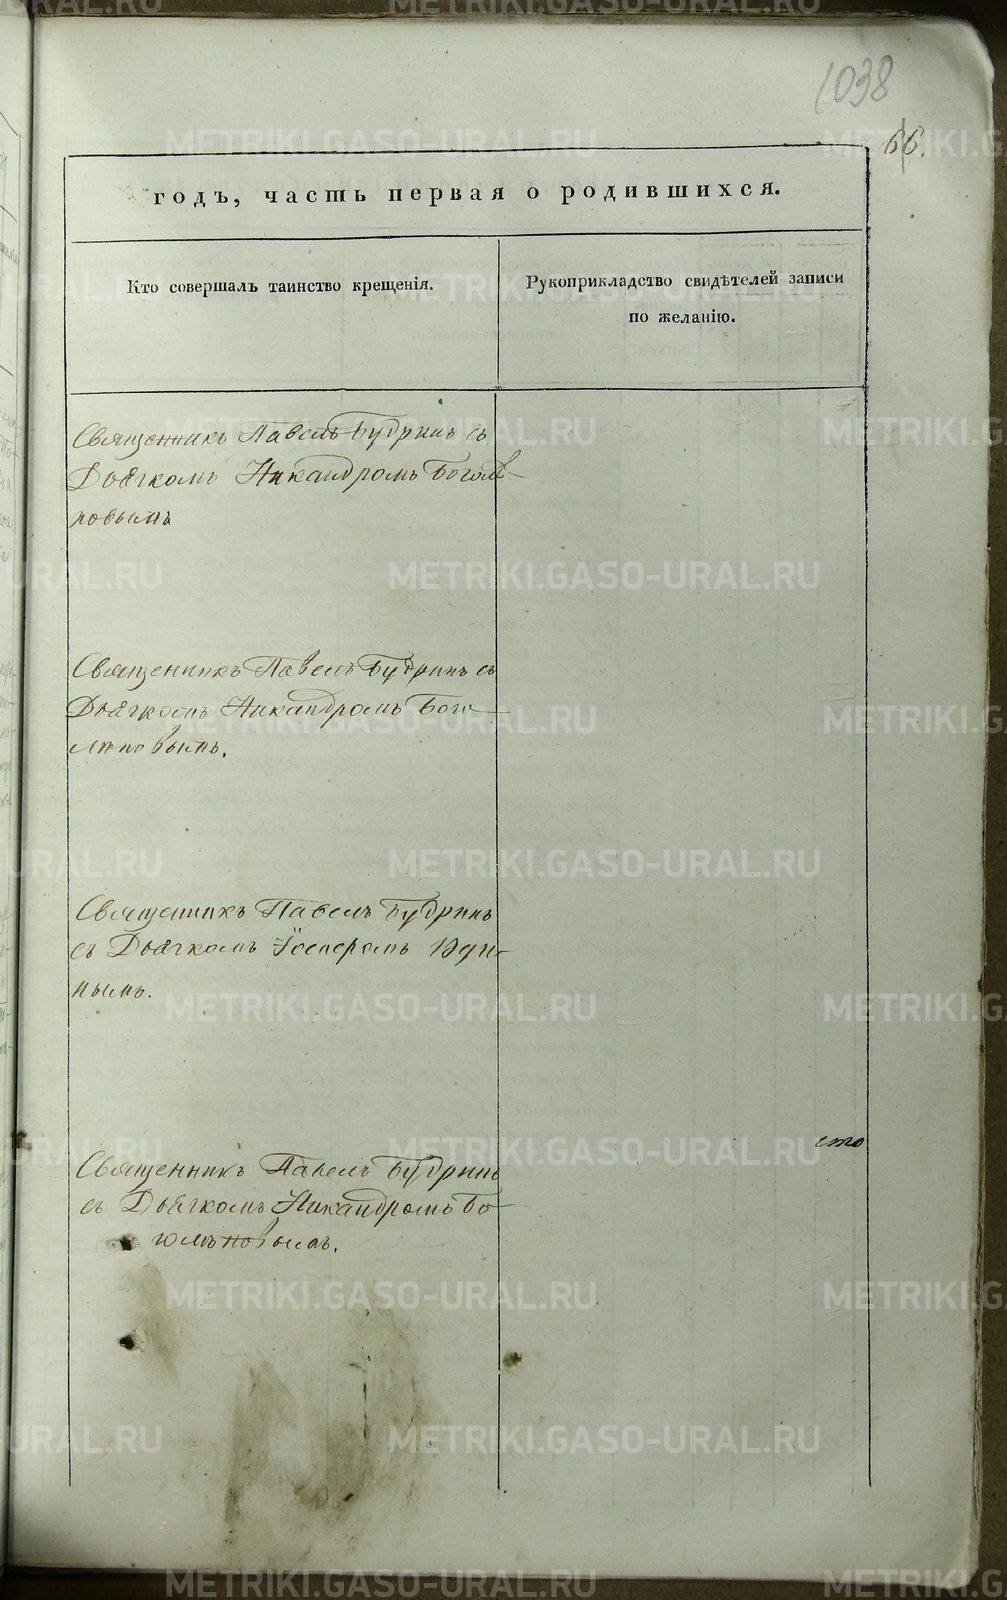 1038
66.
годъ, часть первая о родившихся.
Кто совершалъ таинство крещенія.
Рукоприкладство свидѣтелей записи
по желанію.
Священникъ Павелъ Будринъ съ
Дьячкомъ Никандромъ Боголѣ-
повымъ
Священникъ Павелъ Будринъ съ
Дьячкомъ Никандромъ Бого-
лѣповымъ.
Священникъ Павелъ Будринъ
съ Дьячкомъ
нымъ.
сто
Священникъ Павелъ Будринъ
съ Дьячкомъ Никандромъ Бо-
голѣповымъ.
METRIKI.GASO-URAL.RU